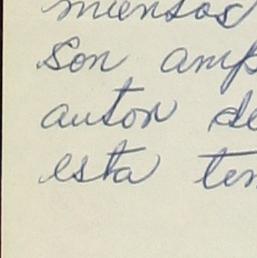 miensos
Son amp
auton de
esta ten